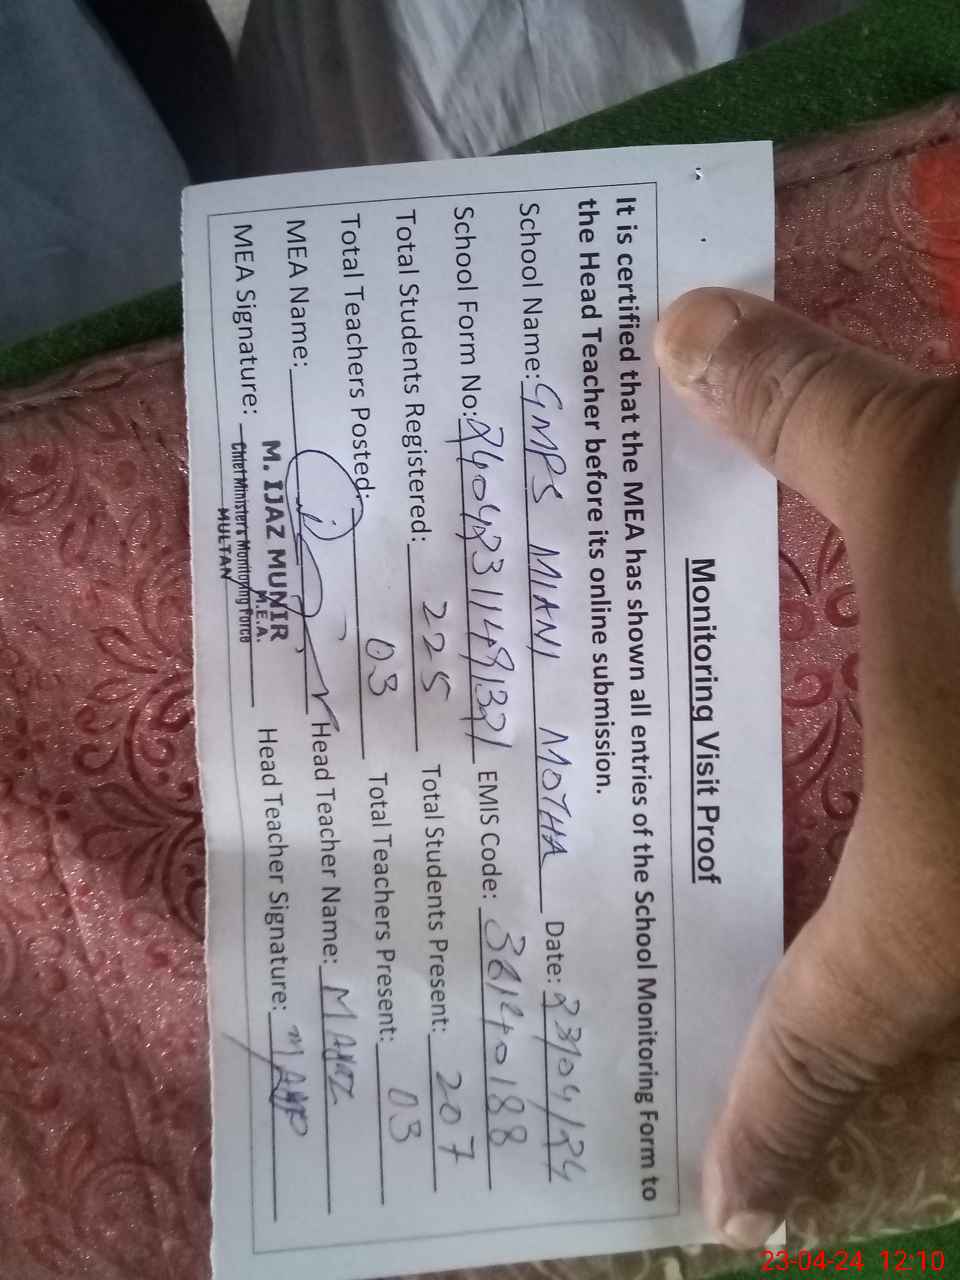 Monitoring Visit Proof
It is certified that the MEA has shown all entries of the School Monitoring Form to
the Head Teacher before its online submission.
School Name: GMPS MIANI MOTHA Date: 23/04/24
School Form No: 2404231149132 EMIS Code: 36140188
Total Students Registered: 225 Total Students Present: 207
Total Teachers Posted: 03 Total Teachers Present: 03
MEA Name: Head Teacher Name: M AYAZ
MEA Signature: Head Teacher Signature:
M. IJAZ MUNIR
M.E.A.
Chief Minister's Monitoring Force
MULTAN
23-04-24 12:10